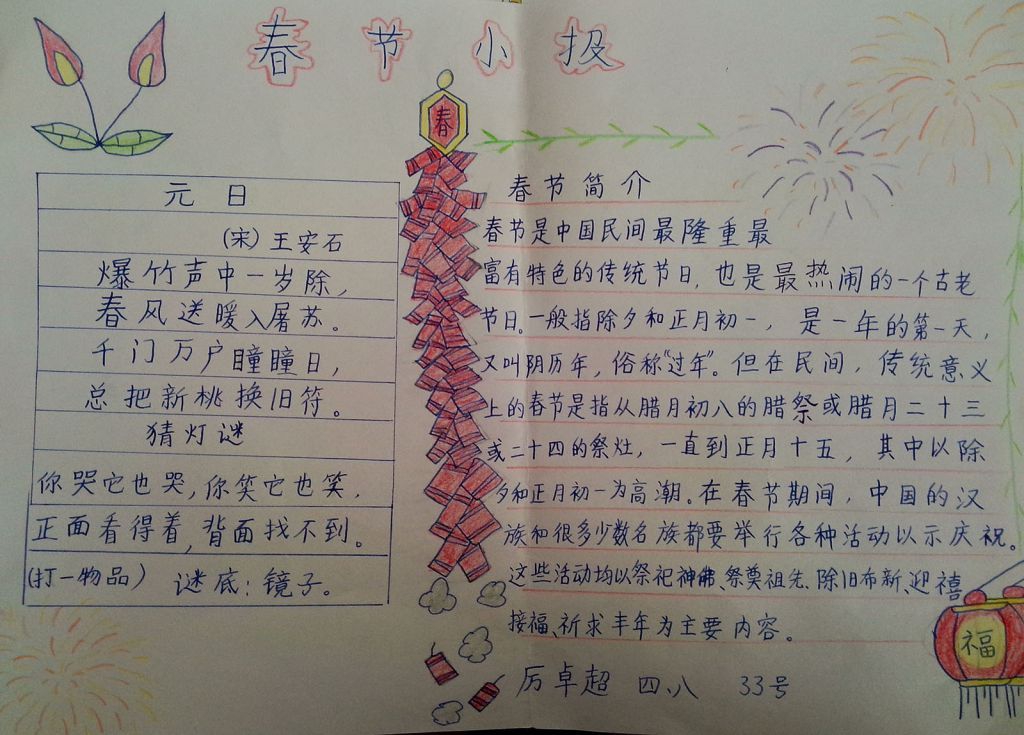 春节小报
元日
(宋)王安石
爆竹声中一岁除，
春风送暖入屠苏。
千门万户瞳瞳日，
总把新桃换旧符。
猜灯谜
你哭它也哭，你笑它也笑，
正面看得着，背面找不到。
(打一物品) 谜底：镜子。
春
春节简介
春节是中国民间最隆重最
富有特色的传统节日，也是最热闹的一个古老
节日。一般指除夕和正月初一，是一年的第一天，
又叫阴历年，俗称“过年”。但在民间，传统意义
上的春节是指从腊月初八的腊祭或腊月二十三
或二十四的祭灶，一直到正月十五，其中以除
夕和正月初一为高潮。在春节期间，中国的汉
族和很多少数名族都要举行各种活动以示庆祝。
这些活动均以祭祀神佛、祭奠祖先、除旧布新、迎禧
接福、祈求丰年为主要内容。
福
厉卓超 四、八 33号